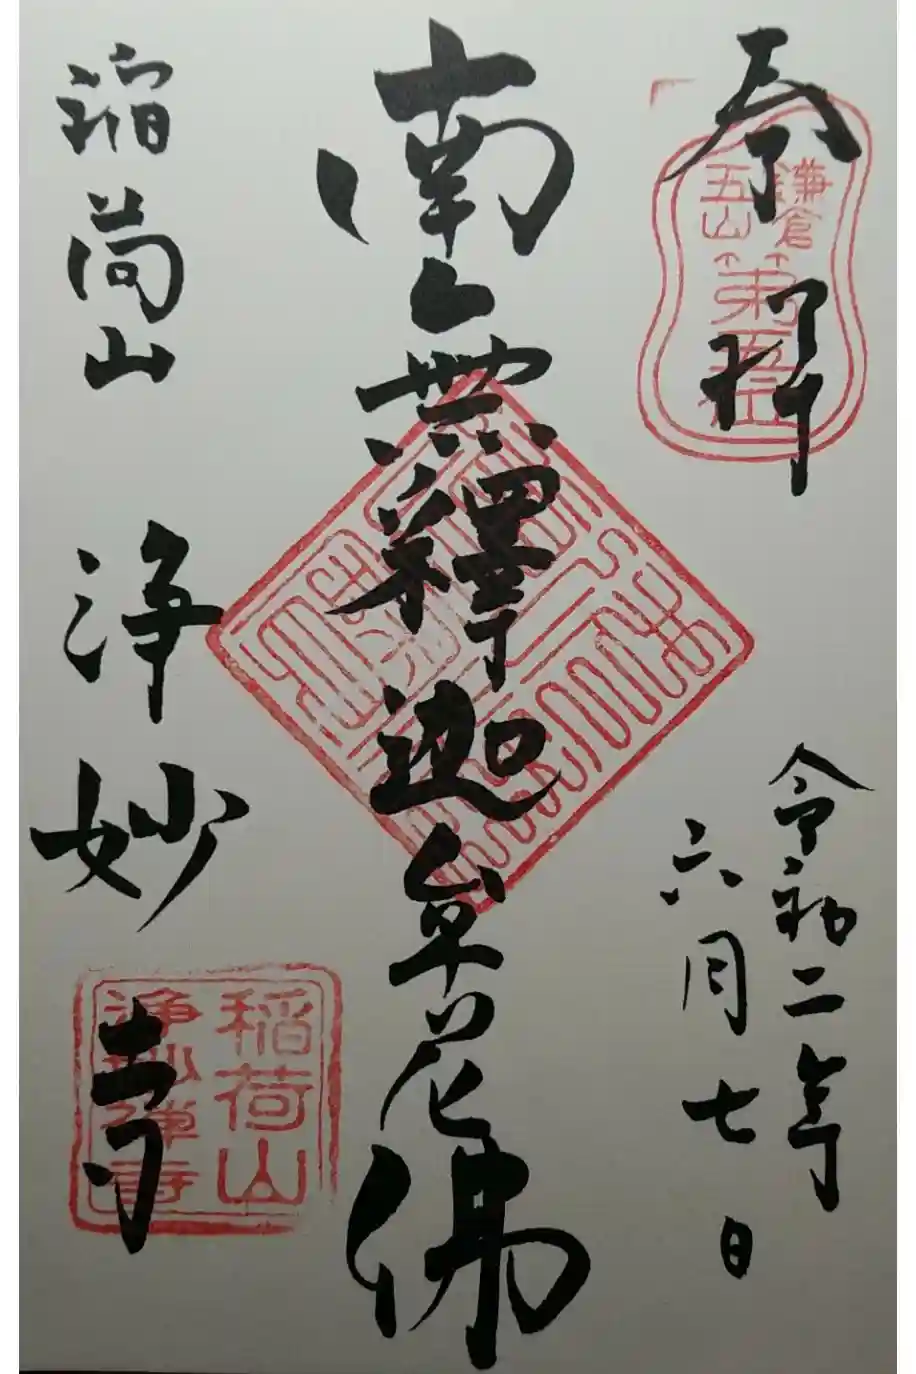 奉拝
鎌倉
五山
第五位
令和二年
六月七日
南無釋迦牟尼佛
稲荷山
浄妙寺
稲荷山
浄妙禅寺